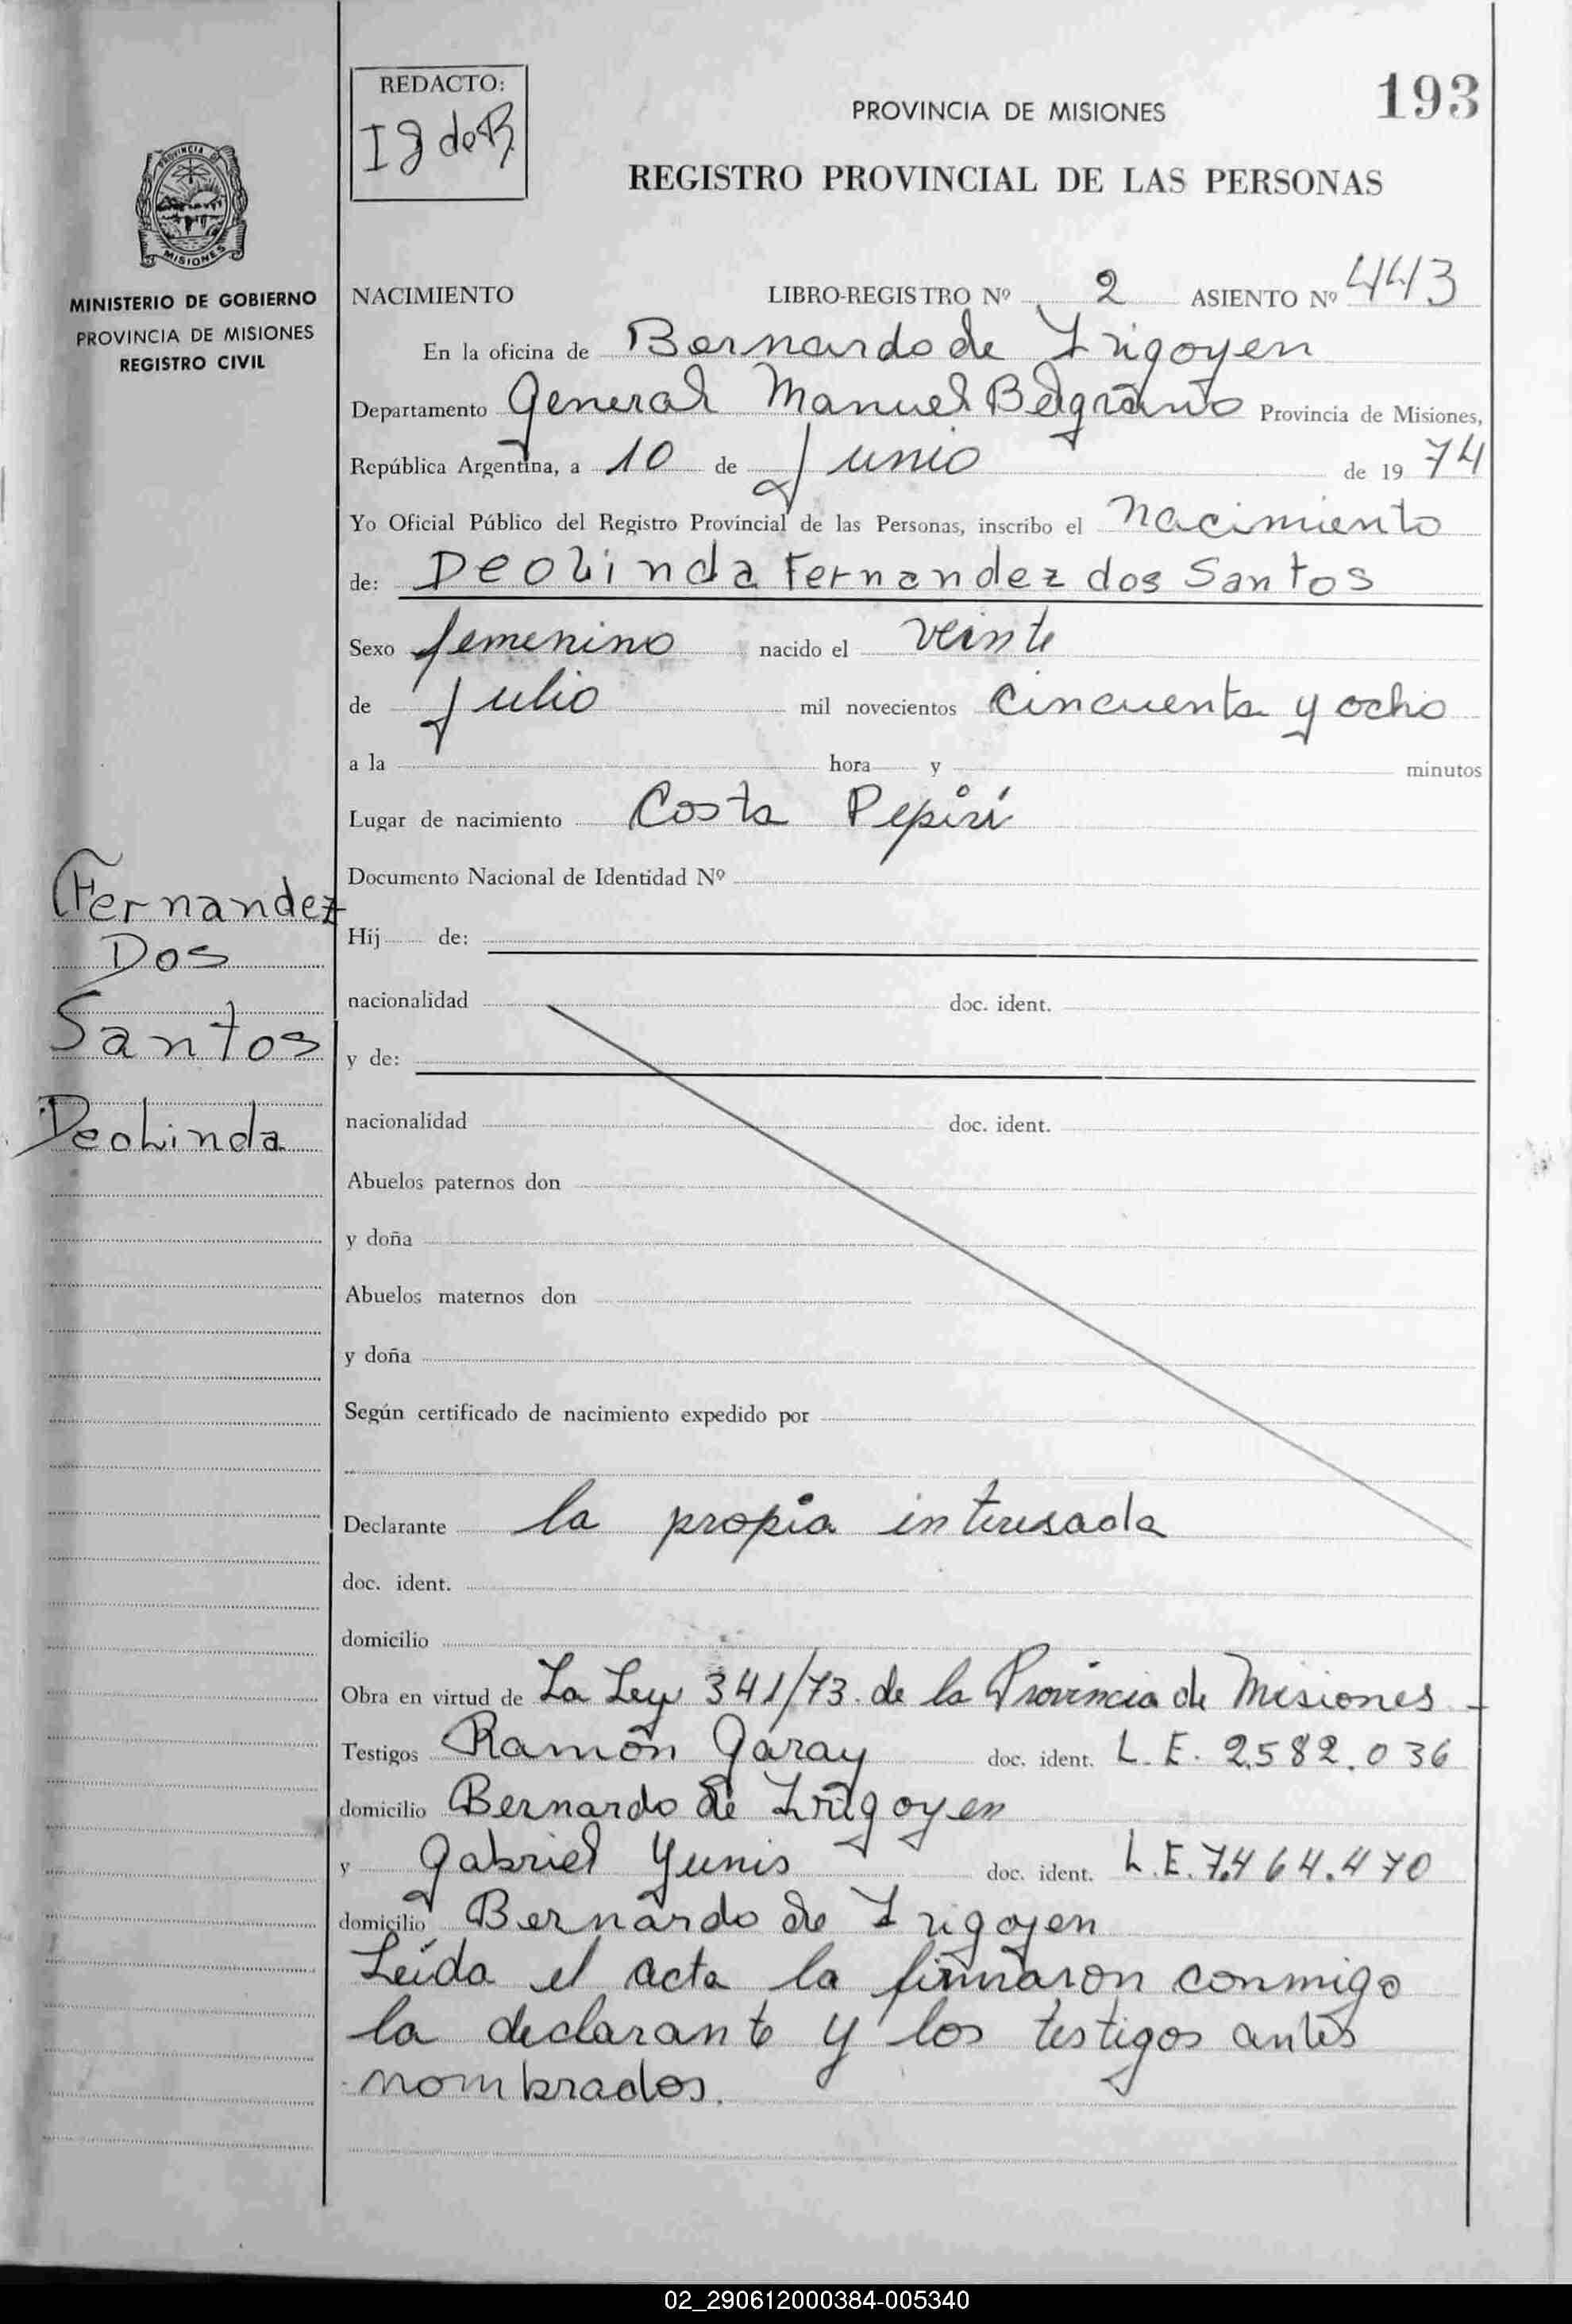 REDACTO:
193
PROVINCIA DE MISIONES
REGISTRO PROVINCIAL DE LAS PERSONAS
PROVINCIA DE
MISIONES
MINISTERIO DE GOBIERNO
PROVINCIA DE MISIONES
REGISTRO CIVIL
NACIMIENTO LIBRO-REGISTRO Nº 2 ASIENTO Nº 443
En la oficina de Bernardo de Irigoyen
Departamento General Manuel Belgrano Provincia de Misiones,
República Argentina, a 10 de Junio de 19 74
Yo Oficial Público del Registro Provincial de las Personas, inscribo el Nacimiento
de: Deolinda Fernandez dos Santos
Sexo femenino nacido el veinte
de Julio mil novecientos cincuenta y ocho
a la hora y minutos
Lugar de nacimiento Costa Pepirí
Documento Nacional de Identidad Nº
Fernandez
Dos
Santos
Deolinda
Hij de:
nacionalidad doc. ident.
y de:
nacionalidad doc. ident.
Abuelos paternos don
y doña
Abuelos maternos don
y doña
Según certificado de nacimiento expedido por
Declarante la propia interesada
doc. ident.
domicilio
Obra en virtud de La Ley 341/73. de la Provincia de Misiones -
Testigos Ramón Garay doc. ident. L.E. 2.582.036
domicilio Bernardo de Irigoyen
y Gabriel Yunis doc. ident. L.E. 7.464.470
domicilio Bernardo de Irigoyen
Leída el acta la firmaron conmigo
la declarante y los testigos antes
nombrados.
02_290612000384-005340